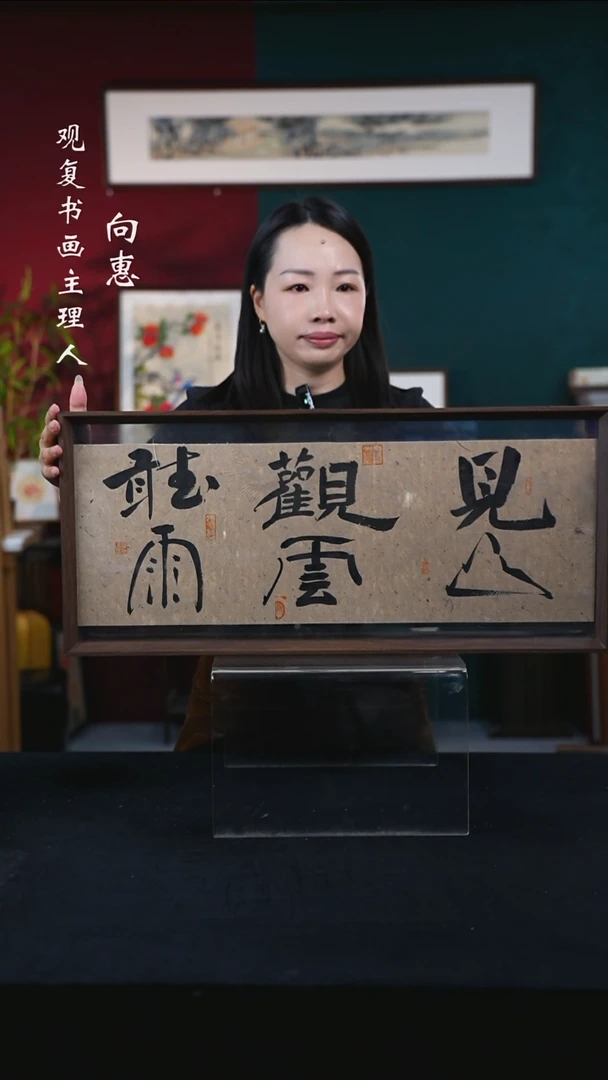 观复书画主理人
向惠
見山
觀雲
聽雨